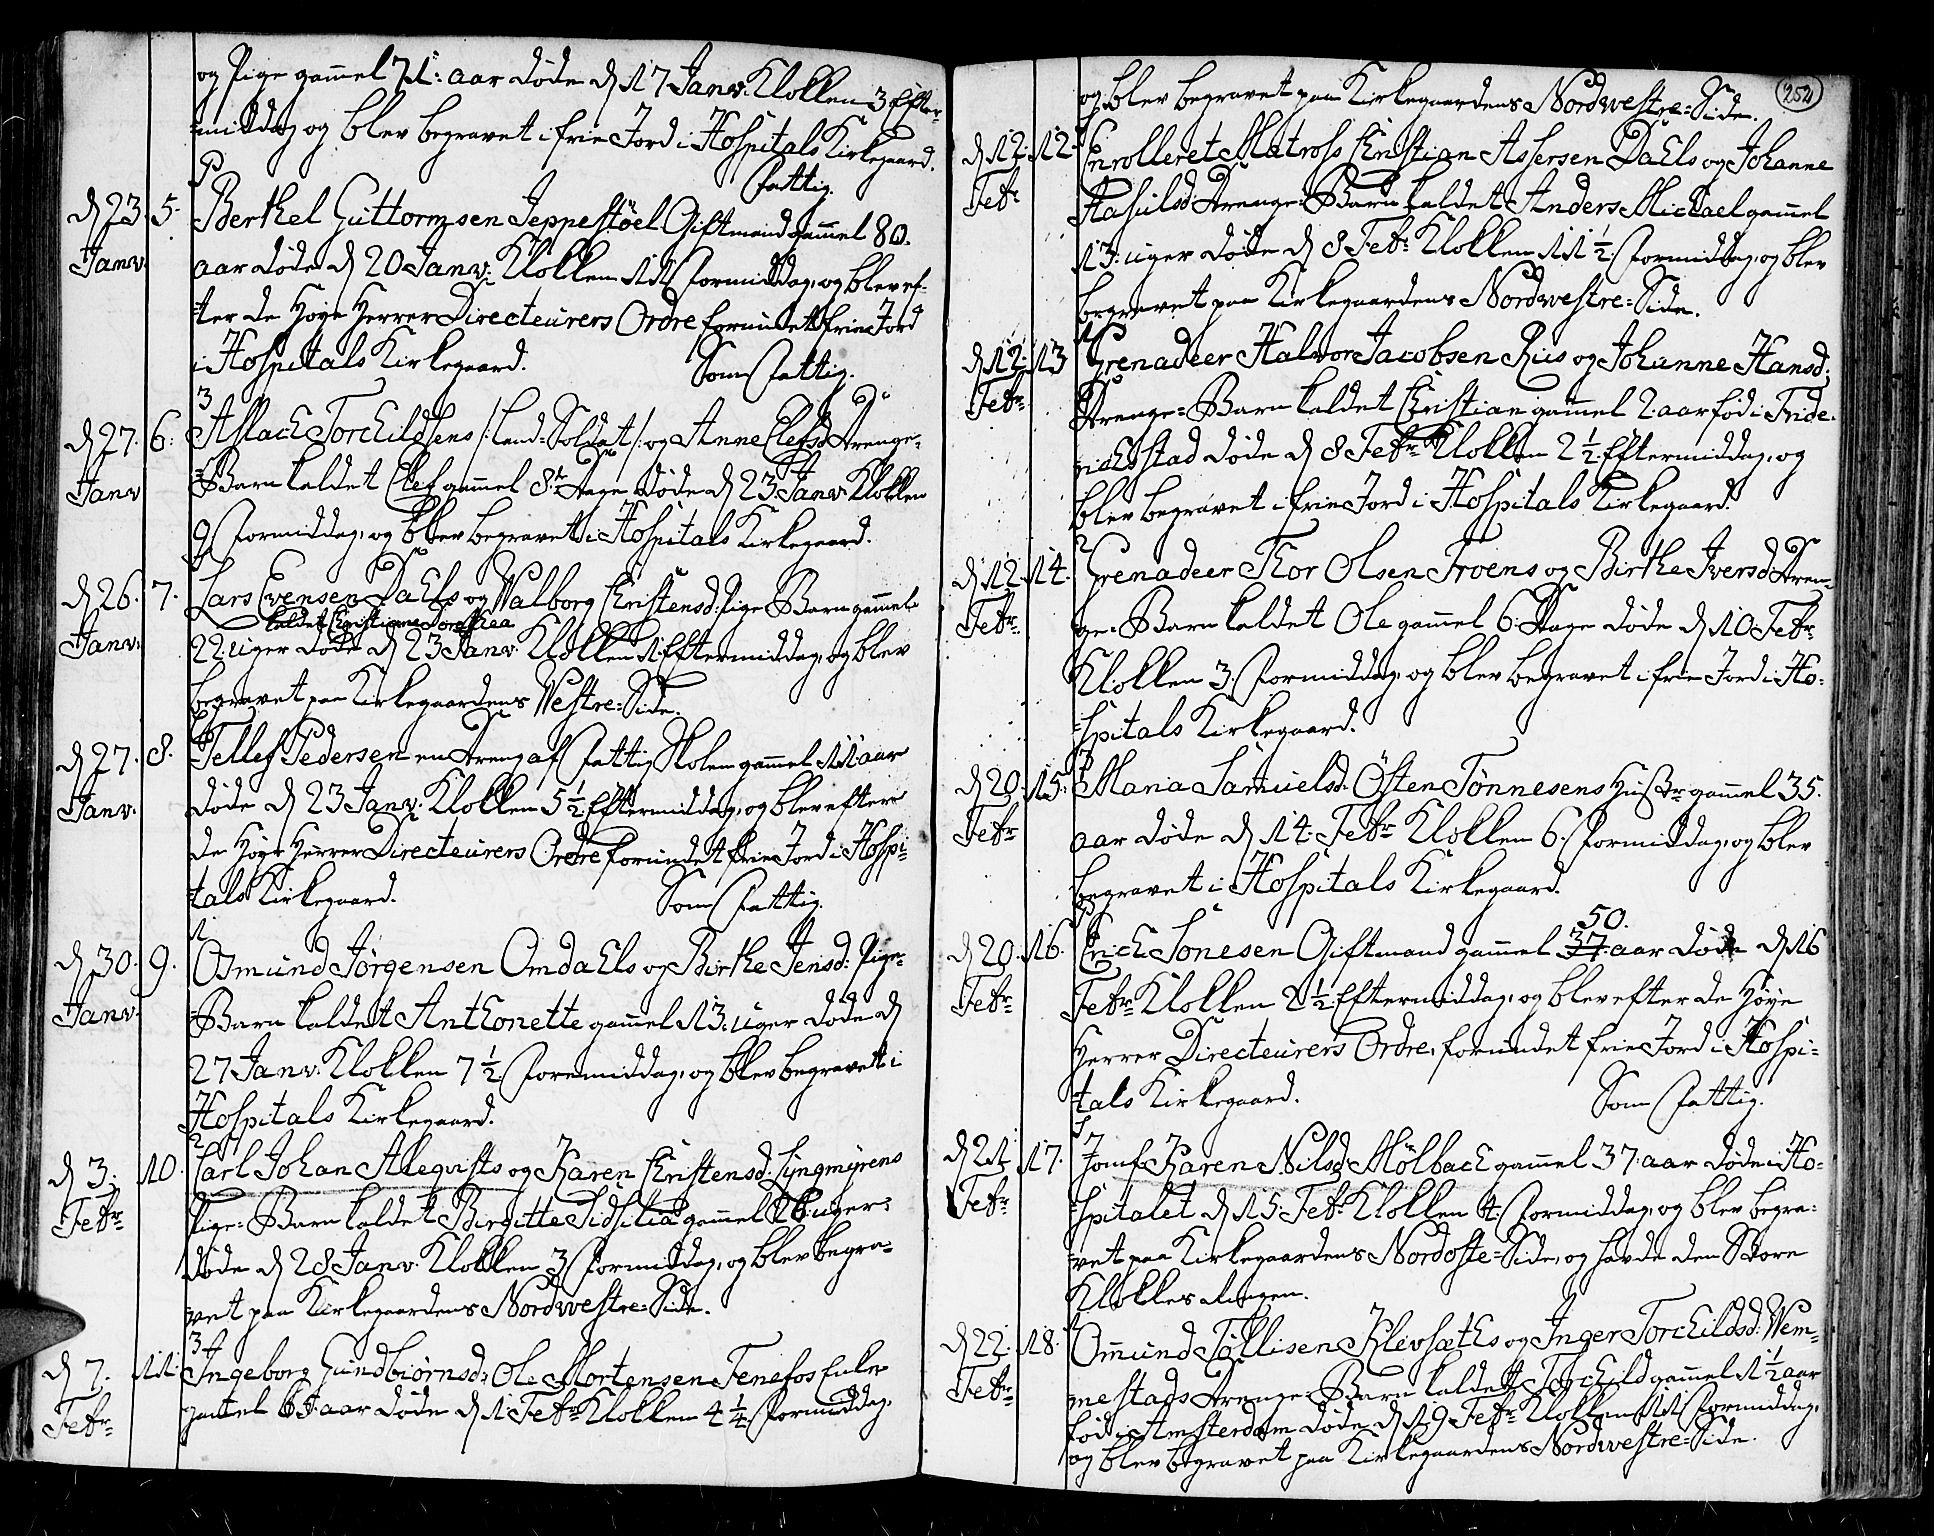 og Pige gammel 71: aar døde d 17 Janv: Klokken 3 Efter-
=middag og blev begravet i frie Jord i Hospitals Kirkegaard.
Fattig.
d 23 5. Berthel Guttormsen Jeppestöel Giftmand gammel 80.
Janv. aar døde d 20 Janv: Klokken 11 Formiddag, og blev ef-
=ter de Høye Herrer Directeurers Ordre forundt frie Jord
i Hospitals Kirkegaard. Som Fattig.
3
d 27. 6. Aslach Torchildsens /: Land-Soldat /: og Anne Elefsd Drenge-
Janv =Barn kaldet Elef gammel 8te Dage døde d 23 Janv: Klokken
9 Formiddag, og blev begravet i Hospitals Kirkegaard.
d 26. 7. Lars Evensen Dahls og Walborg Christensd: Pige Barn gammel
kaldet Christiane Dorothea
Janv. 22 uger døde d 23 Janv: Klokken 1 Eftermiddag, og blev
begravet paa Kirkegaardens Westre=Side.
d 27. 8. Tellef Pedersen en Dreng af Fattig Skolen gammel 11 aar
Janv. døde d 23 Janv: Klokken 5 1/2 Eftermiddag, og blev efter
de Høye Herrer Directeurers Ordre forundet frie Jord i Hospi=
=tals Kirkegaard. Som Fattig.
1
d 30. 9. Osmund Jørgensen Omdahls og Birthe Jensd: Pige-
Janv. =Barn kaldet Anthonette gammel 13. uger døde d
27 Janv: Klokken 7 1/2. Formiddag, og blev begravet i
Hospitals Kirkegaard.
2
d 3. 10. Carl Johan Alleqvists og Karen Christensd: Lyngmyrens
Febr: Pige=Barn kaldet Birgitte Sidsilia gammel 26. uger
døde d 28 Janv. Klokken 3 Formiddag, og blev begra=
vet paa Kirkegaardens Nordwestre=Side.
3
d 7. 11. Ingeborg Gundbiørnsd: Ole Mortensen Fenefos Enke
Febr: gammel aar døde d 1. Febr: Klokken 4 1/4 Formiddag,
252
og blev begravet paa Kirkegaardens Nordwestre=Side.
d 12. 12. Enrolleret Matrose Christian Assersen Dahls og Johanne
Febr Drenge=Barn kaldet Anders Michael gammel
13. uger døde d 8 Febr: Klokken 11 1/2. Formiddag, og blev
begravet paa Kirkegaardens Nordwestre=Side.
d 12. 13 Grenadeer Halvor Jacobsen Riis og Johanne Hansd:
Febr: Drenge=Barn kaldet Christian gammel 2 aar fød i Fride-
richstad døde d 8 Febr: Klokken 2 1/2 Eftermiddag, og
blev begravet i frie Jord i Hospitals Kirkegaard.
2
d 12. 14. Grenadeer Thor Olsen Troens og Birthe Iversd Dren-
Febr: ge=Barn kaldet Ole gammel 6. Dage døde d 10. Febr:
Klokken 3. Formiddag, og blev begravet i frie Jord i Ho-
=spitals Kirkegaard.
d 20. 15. Maria Samuelsd. Östen Tönnesens Hustr: gammel 35.
Febr: aar døde d 14. Febr: Klokken 6. Formiddag, og blev
begravet i Hospitals Kirkegaard.
50.
d 20. 16. Erich Jonesen Giftmand gammel 37. aar døde d 16
Febr: Febr: Klokken 2 1/2 Eftermiddag, og blev efter de Høye
Herrer Directeurers Ordre, forundet frie Jord i Hospi=
=tals Kirkegaard. Som Fattig.
d 21 17. Jomfr: Karen Nilsd Mölbach gammel 37. aar døde i Ho=
Febr: =spitalet d 15. Febr: Klokken 4. Formiddag, og blev begra=
=vet paa Kirkegaardens Nordoste=Side, og havde den Store
Klokkes Ringen.
d 22. 18. Omund Töllisen Klevsæths og Inger Torchildsd: Wem=
Febr: mestads Drenge=Barn kaldet Torchild gammel 1 1/2 aar
fød i Amsterdam døde d 19 Febr: Klokken 11 Formiddag,
og blev begravet paa Kirkegaardens Nordwestre=Side.